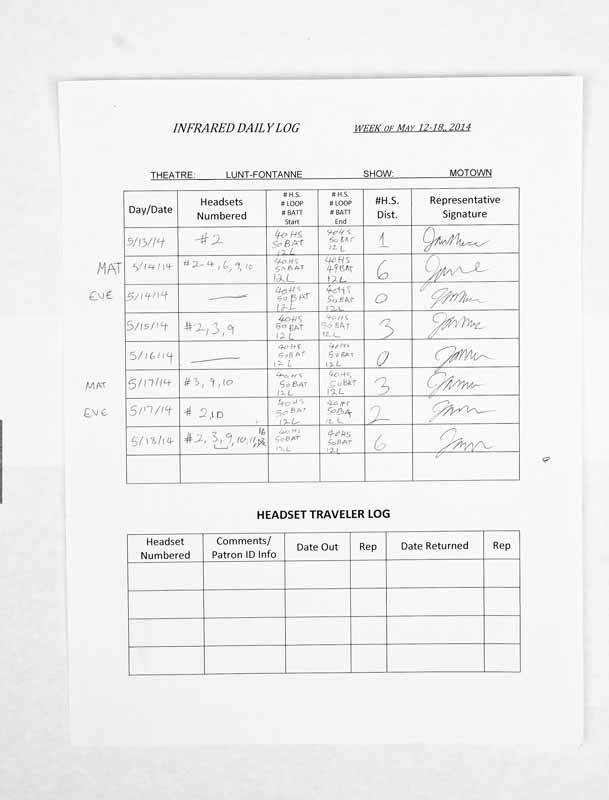 INFRARED DAILY LOG WEEK OF MAY 12-18, 2014
THEATRE: LUNT-FONTANNE SHOW: MOTOWN
Day/Date Headsets Numbered # H.S. # LOOP # BATT Start # H.S. # LOOP # BATT End #H.S. Dist. Representative Signature
5/13/14 #2 40HS 50BAT 12L 40HS 50BAT 12L 1
MAT 5/14/14 #2-4,6,9,10 40HS 50BAT 12L 40HS 49BAT 12L 6
EVE 5/14/14 — 40HS 50BAT 12L 40HS 50BAT 12L 0
5/15/14 #2,3,9 40HS 50BAT 12L 40HS 50BAT 12L 3
5/16/14 — 40HS 50BAT 12L 40HS 50BAT 12L 0
MAT 5/17/14 #3,9,10 40HS 50BAT 12L 40HS 50BAT 12L 3
EVE 5/17/14 #2,10 40HS 50BAT 12L 40HS 50BA 12L 2
5/18/14 #2,3,9,10,11, 40HS 50BAT 12L 40HS 50BAT 12L 6
HEADSET TRAVELER LOG
Headset Numbered Comments/ Patron ID Info Date Out Rep Date Returned Rep